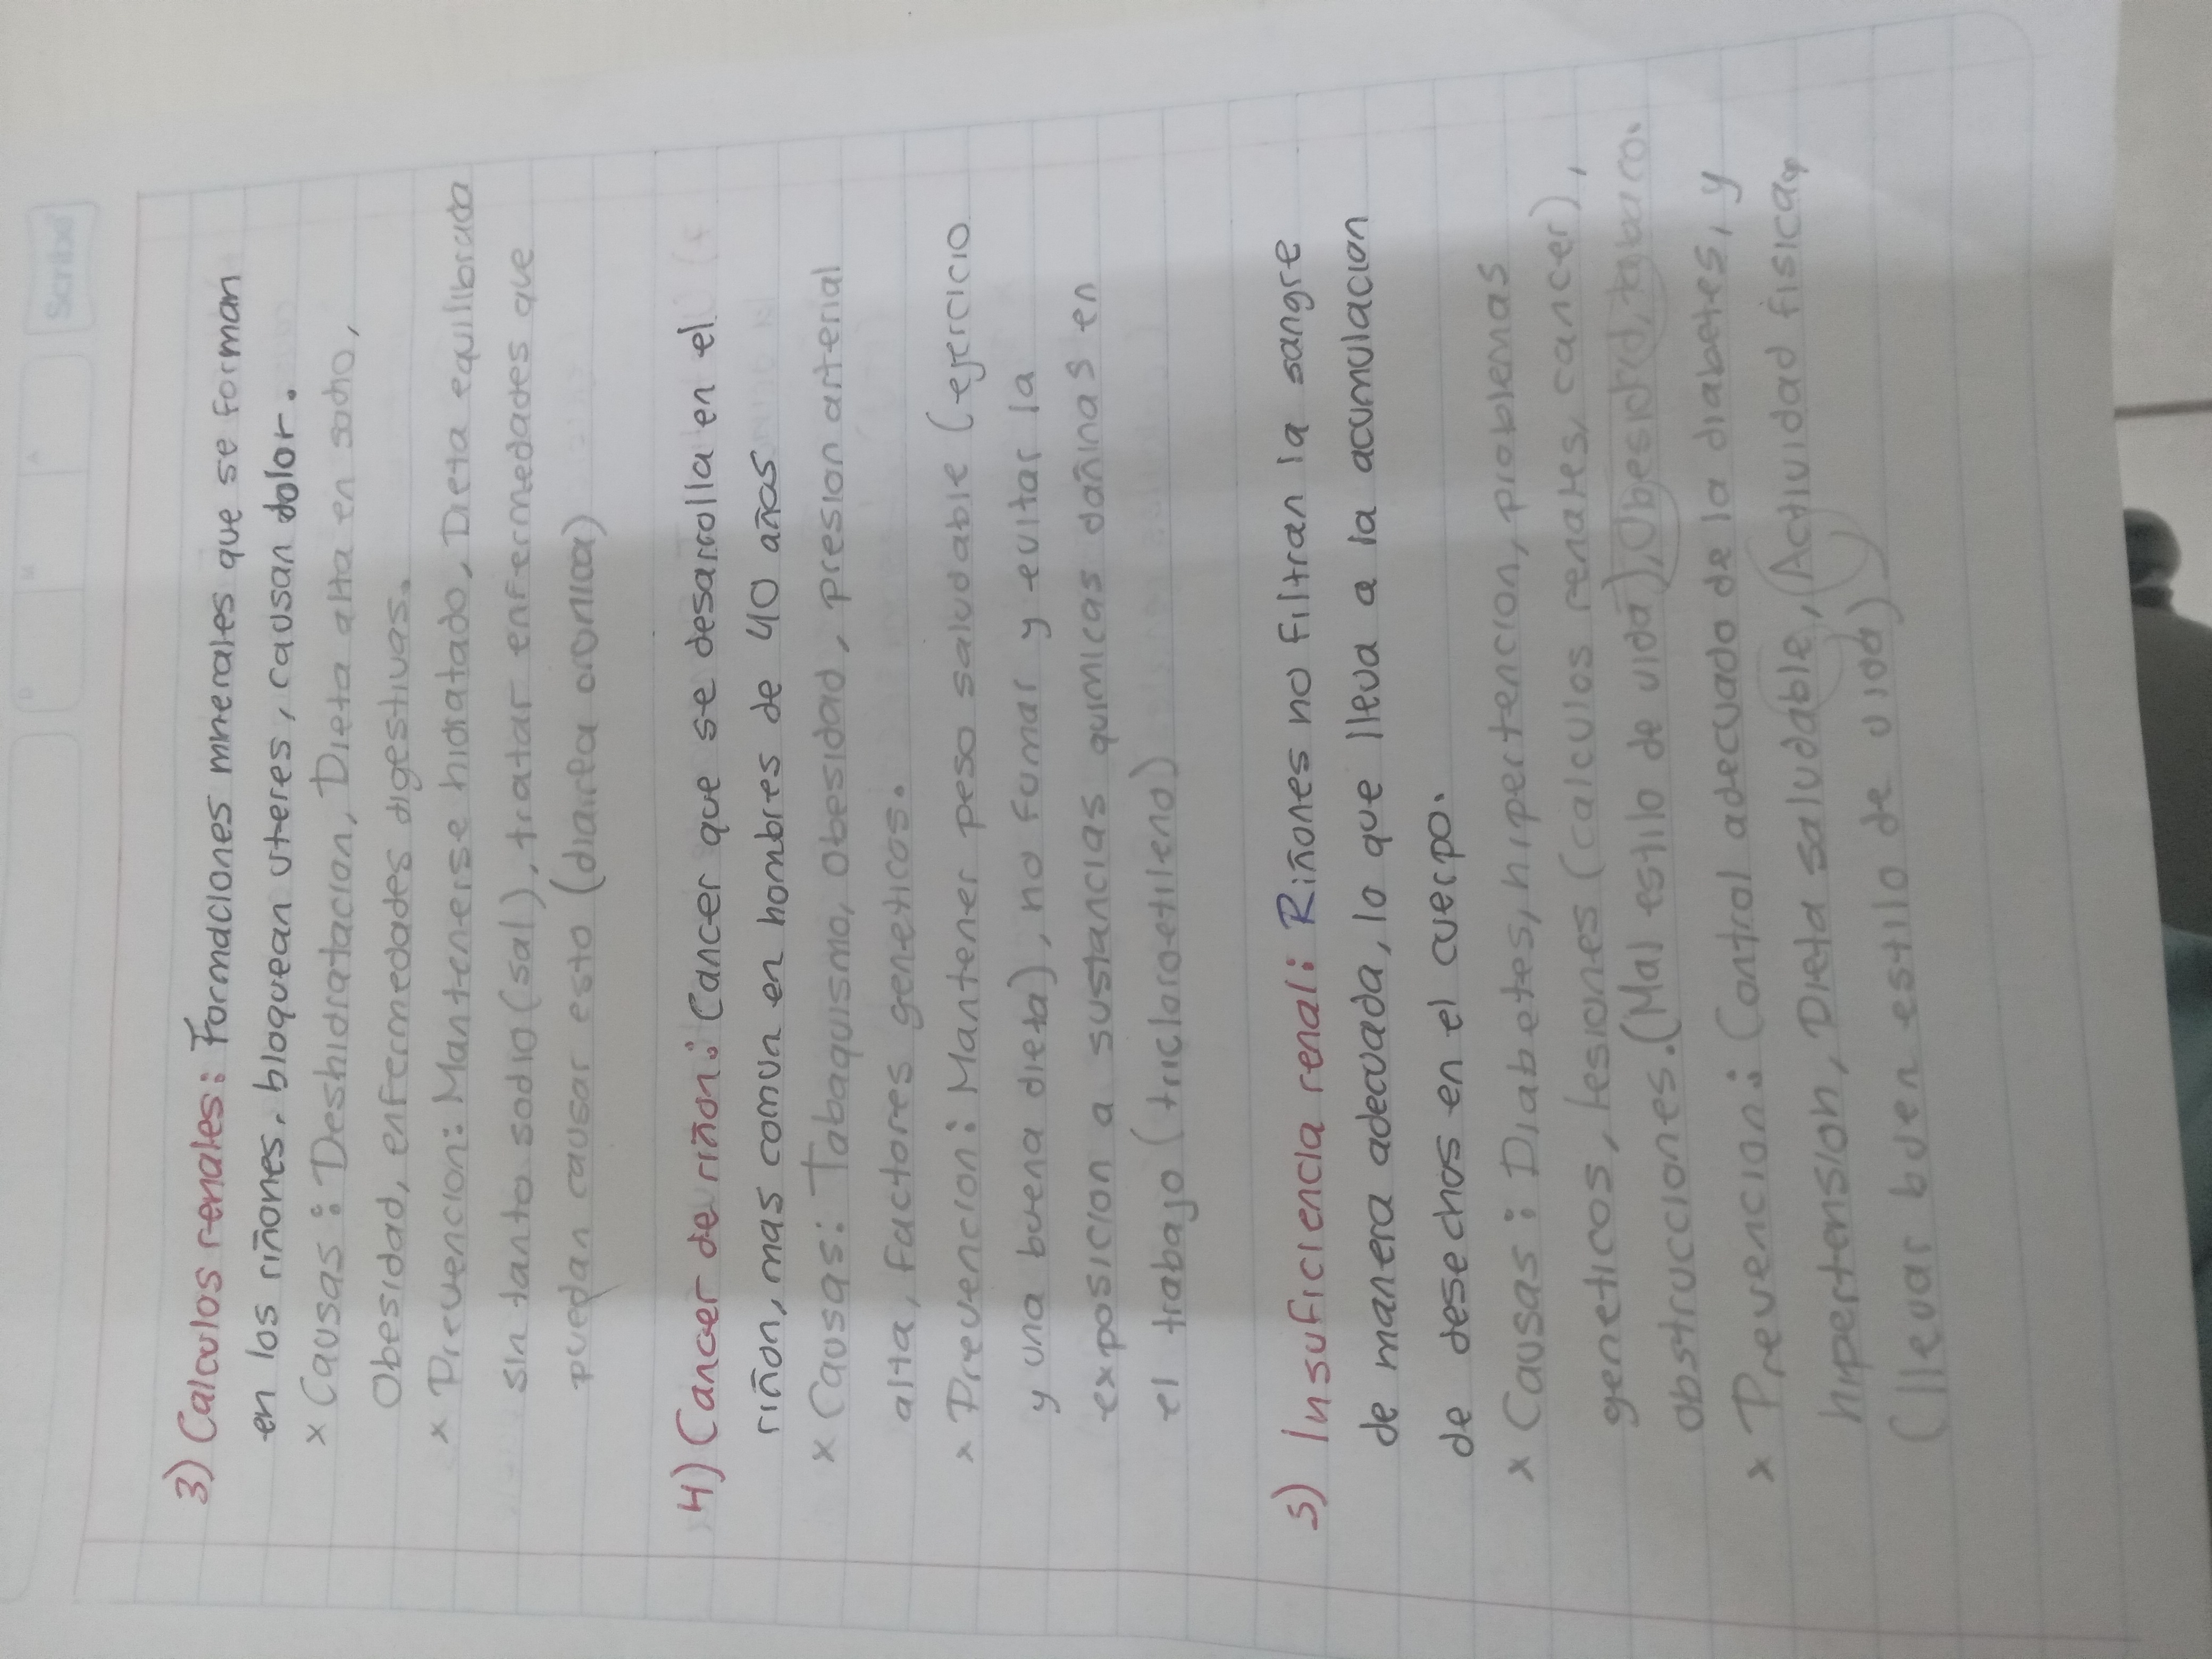 Scribe
D M A
3) Calculos renales: Formaciones minerales que se forman
en los riñones, bloquean uteres, causan dolor.
x Causas: Deshidratacion, Dieta alta en sodio,
Obesidad, enfermedades digestivas.
x Prevencion: Mantenerse hidratado, Dieta equilibrada
sin tanto sodio (sal), tratar enfermedades que
puedan causar esto (diarrea cronica)
4) Cancer de riñon: Cancer que se desarrolla en el
riñon, mas comun en hombres de 40 años
x Causas: Tabaquismo, Obesidad, presion arterial
alta, factores geneticos.
x Prevencion: Mantener peso saludable (ejercicio
y una buena dieta), no fumar y evitar la
exposicion a sustancias quimicas dañinas en
el trabajo (tricloroetileno)
5) Insuficiencia renal: Riñones no filtran la sangre
de manera adecuada, lo que lleva a la acumulacion
de desechos en el cuerpo.
x Causas: Diabetes, hipertencion, problemas
geneticos, lesiones (calculos renales, cancer),
obstrucciones. (Mal estilo de vida), Obesidad, tabaco.
x Prevencion: Control adecuado de la diabetes, y
hipertension, Dieta saludable, Actividad fisica,
(llevar buen estilo de vida)